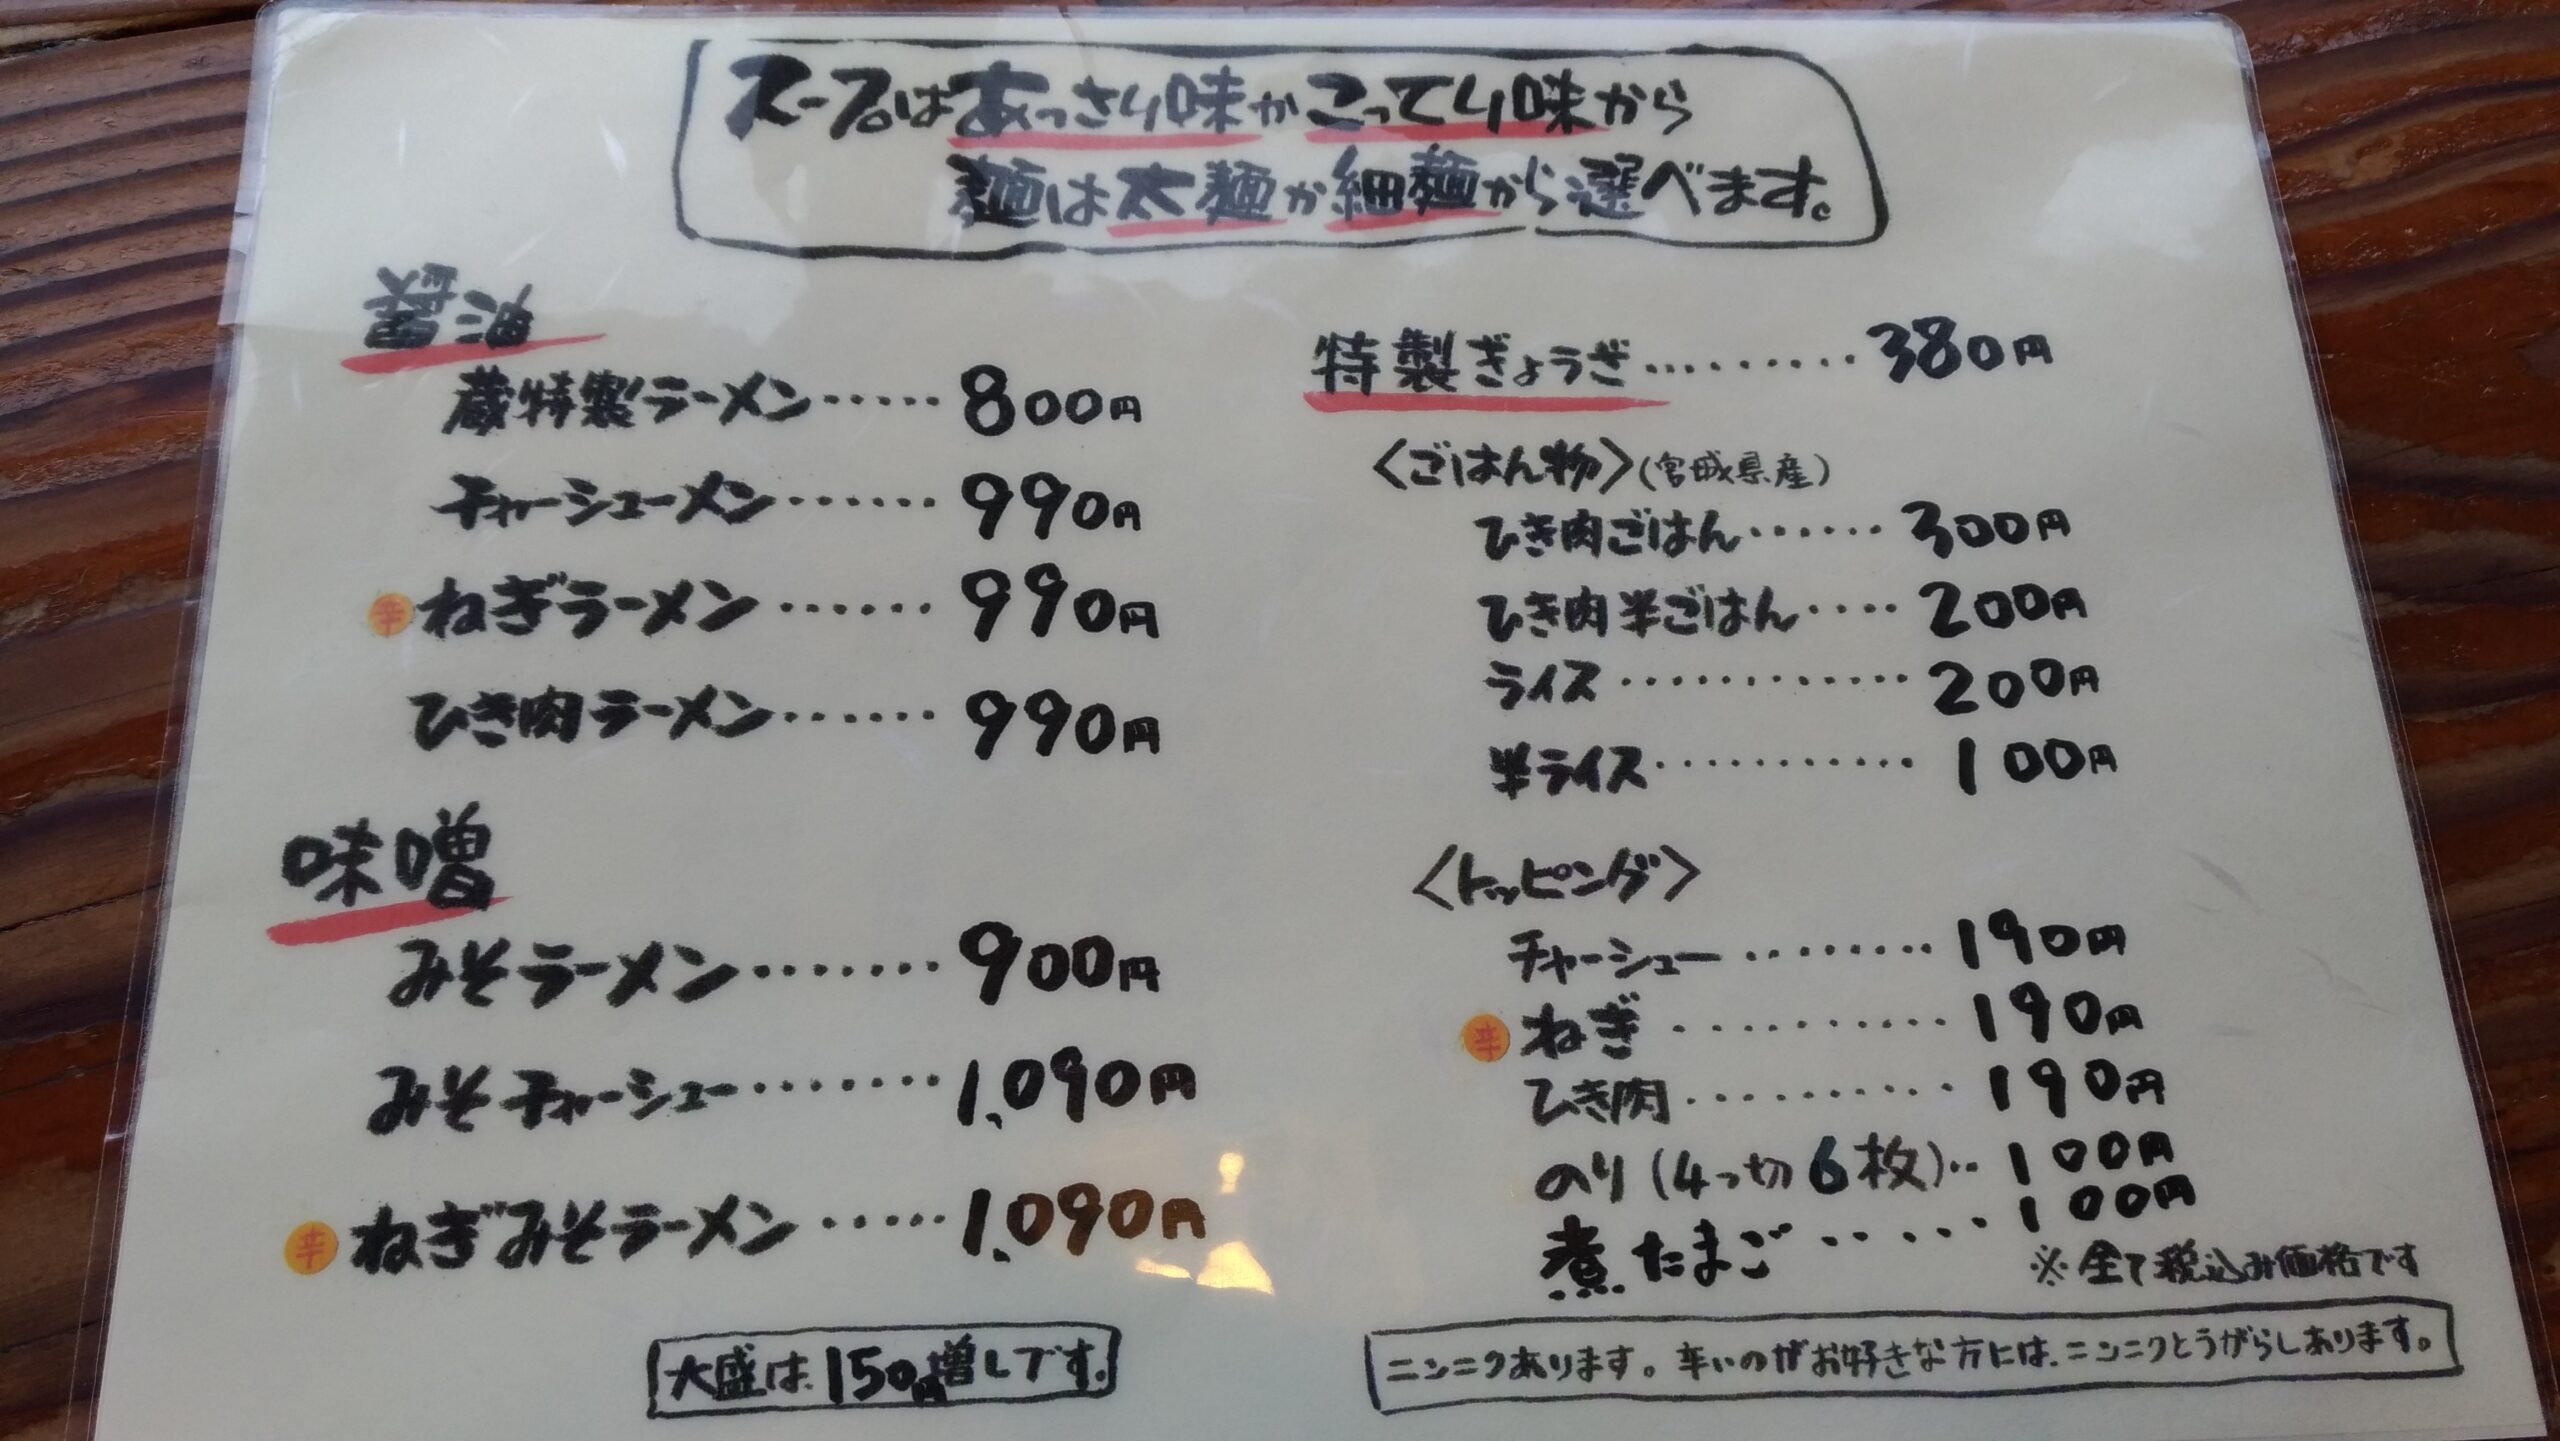 スープはあっさり味かこってり味から
麺は太麺か細麺から選べます。
醤油
蔵特製ラーメン・・・・・800円
チャーシューメン・・・・・・990円
辛 ねぎラーメン・・・・・・990円
ひき肉ラーメン・・・・・・990円
味噌
みそラーメン・・・・・・・900円
みそチャーシュー・・・・・・・1,090円
辛 ねぎみそラーメン・・・・・1,090円
大盛は150円増しです。
特製ぎょうざ・・・・・・・・・380円
〈ごはん物〉(宮城県産)
ひき肉ごはん・・・・・・300円
ひき肉半ごはん・・・・200円
ライス・・・・・・・・・・・・200円
半ライス・・・・・・・・・・・100円
〈トッピング〉
チャーシュー・・・・・・・・190円
辛 ねぎ・・・・・・・・・・・190円
ひき肉・・・・・・・・・・190円
のり(4つ切6枚)・・100円
煮たまご・・・・・・100円
※全て税込み価格です
ニンニクあります。辛いのがお好きな方には、ニンニクとうがらしあります。